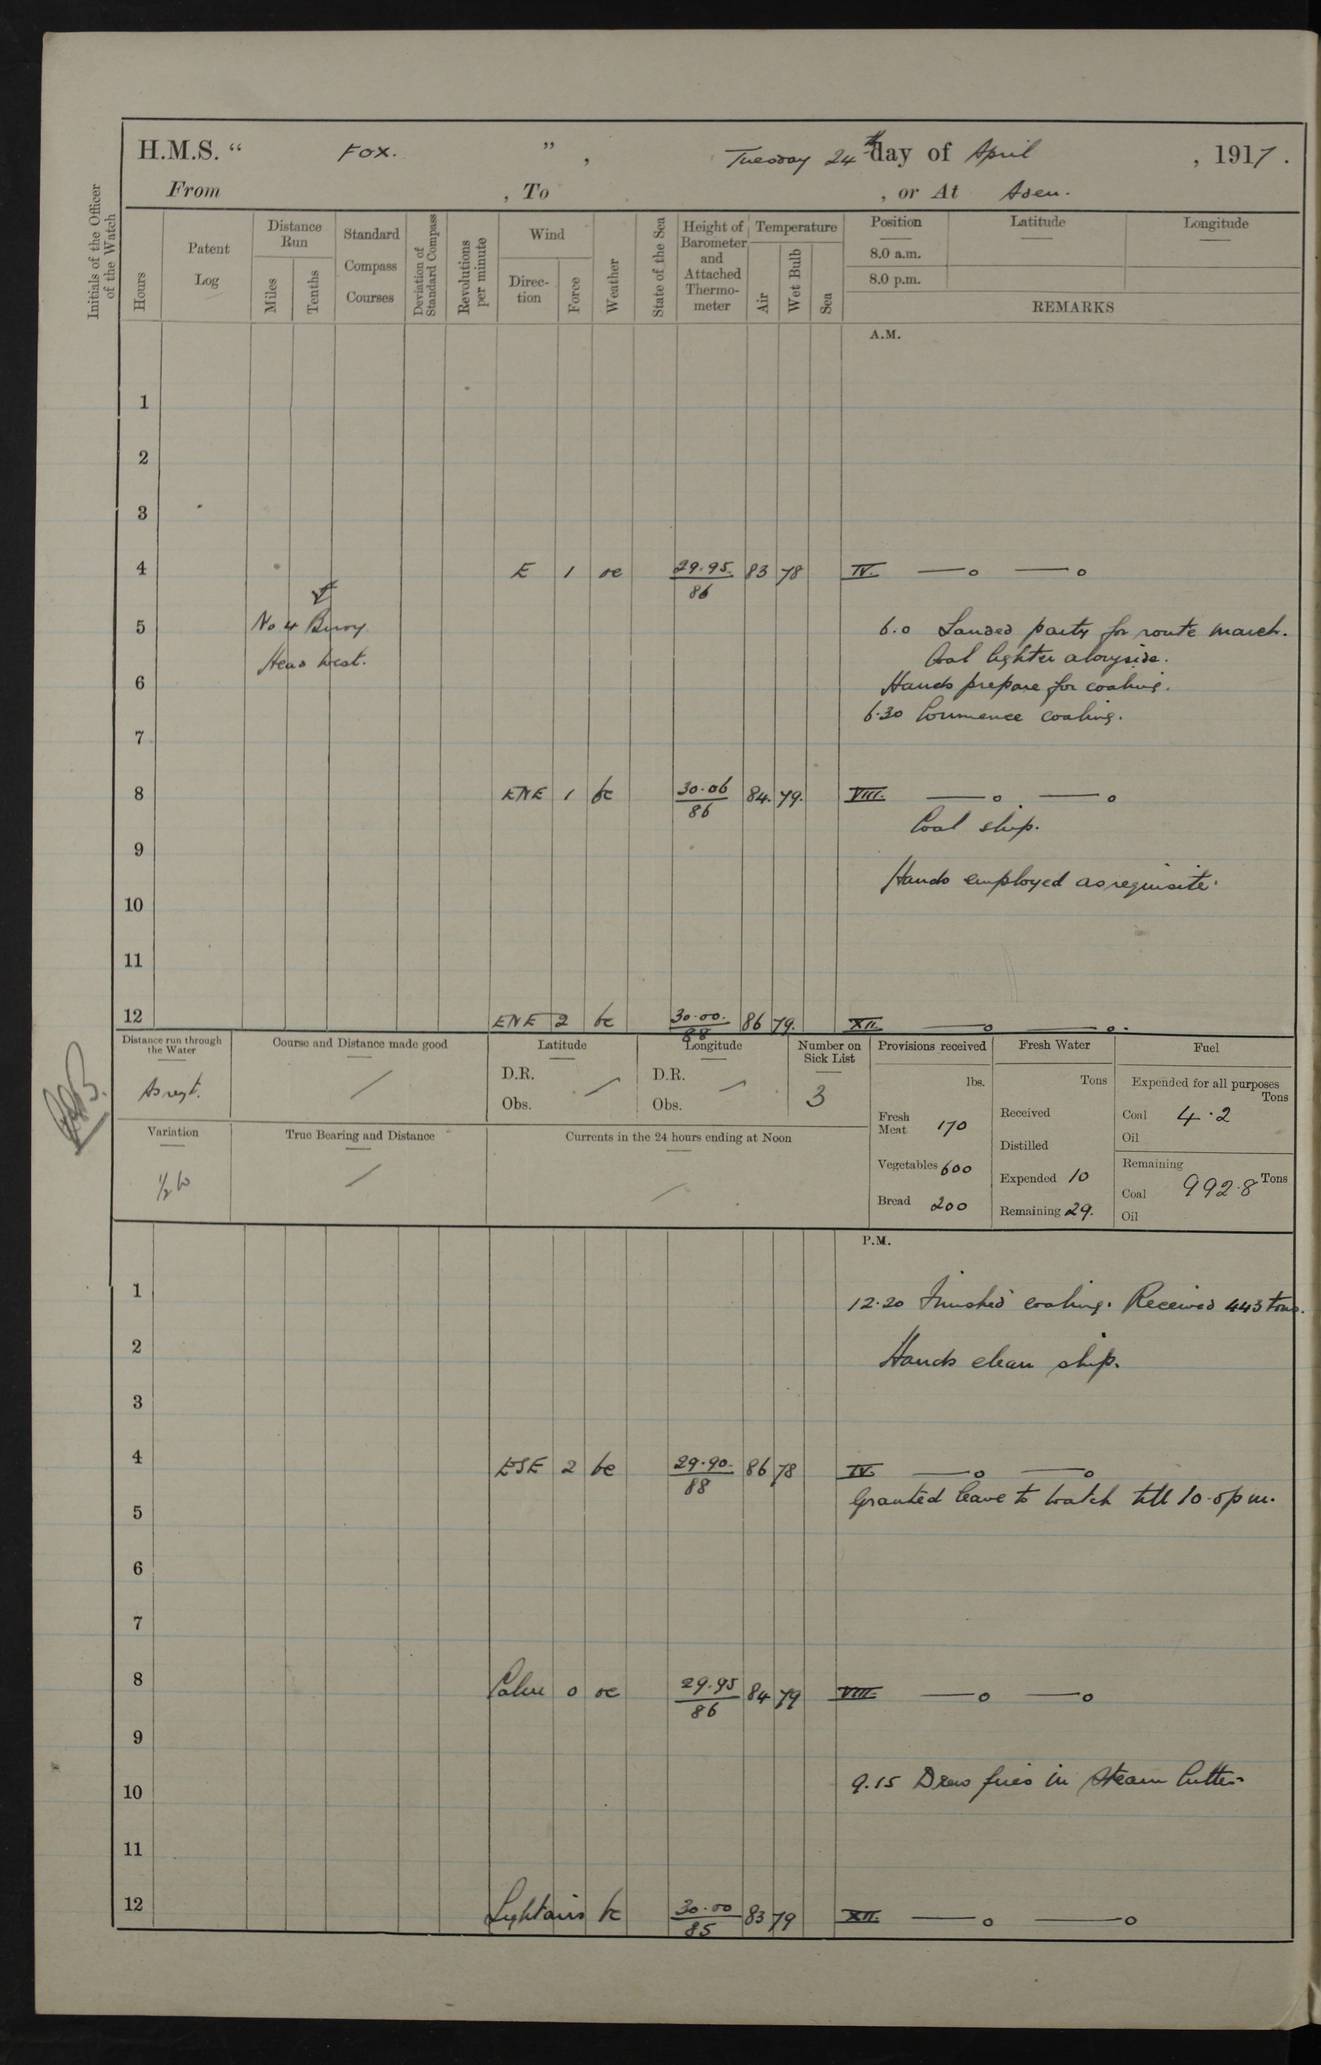 H.M.S. " Fox. ", Tuesday 24th day of April, 1917.
From , To , or At Aden.
Initials of the Officer of the Watch
Hours
Patent Log
Distance Run
Miles
Tenths
Standard Compass Courses
Deviation of Standard Compass
Revolutions per minute
Wind
Direction
Force
Weather
State of the Sea
Height of Barometer and Attached Thermometer
Temperature
Air
Wet Bulb
Sea
Position
8.0 a.m.
8.0 p.m.
Latitude
Longitude
REMARKS
A.M.
1
2
3
4 E 1 oc 29.95. 86 83 78 IV.
No 4 Buoy
5 6.0 Landed party for route march.
Head West.
Coal lighter alongside.
6 Hands prepare for coaling.
6.30 Commence coaling.
7
8 ENE 1 bc 30.06 86 84. 79. VIII.
Coal ship.
9
Hands employed as requisite.
10
11
12 ENE 2 bc 30.00. 88 86 79. XII.
Distance run through the Water
As reqt.
Course and Distance made good
Latitude
D.R.
Obs.
Longitude
D.R.
Obs.
Number on Sick List
3
Provisions received
lbs.
Fresh Meat 170
Vegetables 600
Bread 200
Fresh Water
Tons
Received
Distilled
Expended 10
Remaining 29.
Fuel
Expended for all purposes
Tons
Coal 4.2
Oil
Remaining
Coal 992.8 Tons
Oil
Variation
½ W
True Bearing and Distance
Currents in the 24 hours ending at Noon
P.M.
1 12.20 Finished coaling. Received 443 tons.
2 Hands clean ship.
3
4 ESE 2 bc 29.90. 88 86 78 IV.
Granted leave to watch till 10.0 pm.
5
6
7
8 Calm 0 oc 29.95 86 84 79 VIII.
9
9.15 Drew fires in Steam Cutter
10
11
12 Light airs bc 30.00 85 83 79 XII.